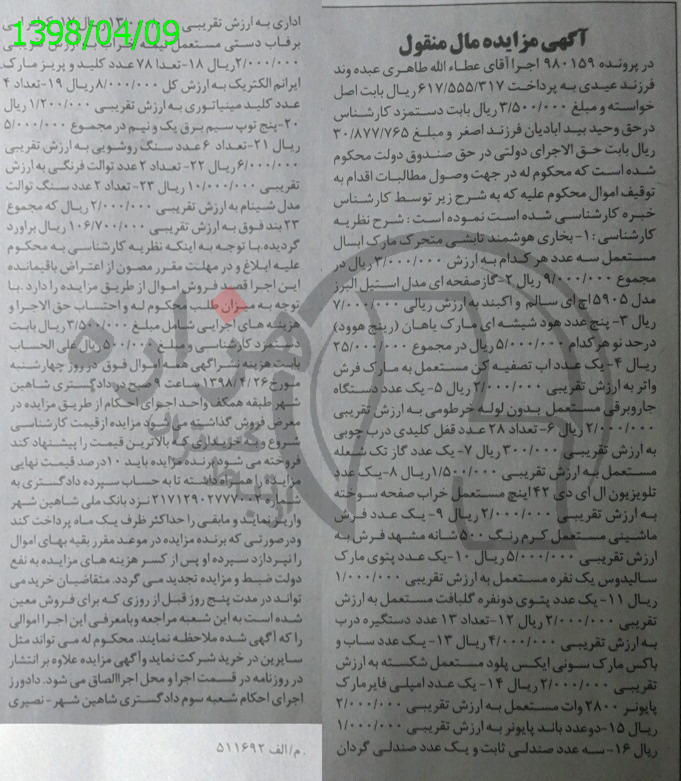 1398/04/09
آگهی مزایده مال منقول
در پرونده ۹۸۰۱۵۹ اجرا آقای عطاء الله طاهری عبده وند
فرزند عیدی به پرداخت ۶۱۷/۵۵۵/۳۱۷ ریال بابت اصل
خواسته و مبلغ ۳/۵۰۰/۰۰۰ ریال بابت دستمزد کارشناس
در حق وحید بید ابادیان فرزند اصغر و مبلغ ۳۰/۸۷۷/۷۶۵
ریال بابت حق الاجرای دولتی در حق صندوق دولت محکوم
شده است که محکوم له در جهت وصول مطالبات اقدام به
توقیف اموال محکوم علیه که به شرح زیر توسط کارشناس
خبره کارشناسی شده است نموده است : شرح نظریه
کارشناسی : ۱- بخاری هوشمند تابشی متحرک مارک ابسال
مستعمل سه عدد هر کدام به ارزش ۳/۰۰۰/۰۰۰ ریال در
مجموع ۹/۰۰۰/۰۰۰ ریال ۲- گاز صفحه ای مدل استیل البرز
مدل ۵۹۰۵ اچ ای سالم و اکبند به ارزش ریالی ۷/۰۰۰/۰۰۰
ریال ۳- پنج عدد هود شیشه ای مارک یاهان (رینج هوود)
در حد نو هر کدام ۵/۰۰۰/۰۰۰ ریال در مجموع ۲۵/۰۰۰/۰۰۰
ریال ۴- یک عدد اب تصفیه کن مستعمل به مارک فرش
واتر به ارزش تقریبی ۲/۰۰۰/۰۰۰ ریال ۵- یک عدد دستگاه
جاروبرقی مستعمل بدون لوله خرطومی به ارزش تقریبی
۲/۰۰۰/۰۰۰ ریال ۶- تعداد ۲۸ عدد قفل کلیدی درب چوبی
به ارزش تقریبی ۳۰۰/۰۰۰ ریال ۷- یک عدد گاز تک شعله
مستعمل به ارزش تقریبی ۱/۵۰۰/۰۰۰ ریال ۸- یک عدد
تلویزیون ال ای دی ۴۲ اینچ مستعمل خراب صفحه سوخته
به ارزش تقریبی ۲/۰۰۰/۰۰۰ ریال ۹- یک عدد فرش
ماشینی مستعمل کرم رنگ ۵۰۰ شانه مشهد فرش به
ارزش تقریبی ۵/۰۰۰/۰۰۰ ریال ۱۰- یک عدد پتوی مارک
سالیدوس یک نفره مستعمل به ارزش تقریبی ۱/۰۰۰/۰۰۰
ریال ۱۱- یک عدد پتوی دونفره گلبافت مستعمل به ارزش
تقریبی ۲/۰۰۰/۰۰۰ ریال ۱۲- تعداد ۱۳ عدد دستگیره درب
به ارزش تقریبی ۴/۰۰۰/۰۰۰ ریال ۱۳- یک عدد ساب و
باکس مارک سونی ایکس پلود مستعمل شکسته به ارزش
تقریبی ۲/۰۰۰/۰۰۰ ریال ۱۴- یک عدد امپلی فایر مارک
پایونر ۲۸۰۰ وات مستعمل به ارزش تقریبی ۲/۰۰۰/۰۰۰
ریال ۱۵- دو عدد باند پایونر به ارزش تقریبی ۱/۰۰۰/۰۰۰
ریال ۱۶- سه عدد صندلی ثابت و یک عدد صندلی گردان
اداری به ارزش تقریبی
برفاب دستی مستعمل نیمه خراب به ارزش
۲/۰۰۰/۰۰۰ ریال ۱۸- تعدا ۷۸ عدد کلید و پریز مارک
ایرانم الکتریک به ارزش کل ۸/۰۰۰/۰۰۰ ریال ۱۹- تعداد ۴
عدد کلید مینیاتوری به ارزش تقریبی ۱/۲۰۰/۰۰۰ ریال
۲۰- پنج توپ سیم برق یک و نیم در مجموع ۵/۰۰۰/۰۰۰
ریال ۲۱- تعداد ۶ عدد سنگ روشویی به ارزش تقریبی
۶/۰۰۰/۰۰۰ ریال ۲۲- تعداد ۲ عدد توالت فرنگی به ارزش
تقریبی ۱۰/۰۰۰/۰۰۰ ریال ۲۳- تعداد ۲ عدد سنگ توالت
مدل شبنام به ارزش تقریبی ۲/۰۰۰/۰۰۰ ریال که مجموع
۲۳ بند فوق به ارزش تقریبی ۱۰۶/۷۰۰/۰۰۰ ریال براورد
گردیده. با توجه به اینکه نظریه کارشناسی به محکوم
علیه ابلاغ و در مهلت مقرر مصون از اعتراض باقیمانده
این اجرا قصد فروش اموال از طریق مزایده را دارد. با
توجه به میزان طلب محکوم له و احتساب حق الاجرا و
هزینه های اجرایی شامل مبلغ ۳/۵۰۰/۰۰۰ ریال بابت
دستمزد کارشناسی و مبلغ ۵۰۰/۰۰۰ ریال علی الحساب
بابت هزینه نشر اگهی همه اموال فوق در روز چهارشنبه
مورخ ۱۳۹۸/۴/۲۶ ساعت ۹ صبح در دادگستری شاهین
شهر طبقه همکف واحد اجرای احکام از طریق مزایده در
معرض فروش گذاشته می شود مزایده از قیمت کارشناسی
شروع و به خریداری که بالاترین قیمت را پیشنهاد کند
فروخته می شود برنده مزایده باید ۱۰ درصد قیمت نهایی
مزایده را همراه داشته تا به حساب سپرده دادگستری به
شماره ۲۱۷۱۲۹۰۲۷۷۷۰۰۲ نزد بانک ملی شاهین شهر
واریز نماید و مابقی را حداکثر ظرف یک ماه پرداخت کند
و در صورتی که برنده مزایده در موعد مقرر بقیه بهای اموال
را نپردازد سپرده او پس از کسر هزینه های مزایده به نفع
دولت ضبط و مزایده تجدید می گردد. متقاضیان خرید می
تواند در مدت پنج روز قبل از روزی که برای فروش معین
شده است به این شعبه مراجعه و با معرفی این اجرا اموالی
را که آگهی شده ملاحظه نمایند. محکوم له می تواند مثل
سایرین در خرید شرکت نماید و آگهی مزایده علاوه بر انتشار
در روزنامه در قسمت اجرا و محل اجرا الصاق می شود. دادورز
اجرای احکام شعبه سوم دادگستری شاهین شهر - نصیری
۵۱۱۶۹۲ م/الف